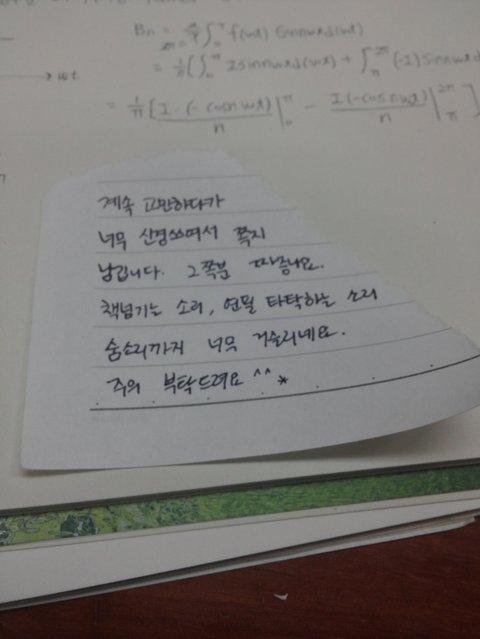 Bn =
f(wt) sin nwt d(wt)
= 1/π [ ∫₀^π I sin nwt d(wt) + ∫_π^2π (-I) sin nwt d
→ wt
= 1/π [ I·(-cos nwt)/n |₀^π - I(-cos nwt)/n |_π^2π ]
계속 고민하다가
너무 신경쓰여서 쪽지
남깁니다. 그쪽분 짜증나요.
책넘기는 소리, 연필 타탁하는 소리
숨소리까지 너무 거슬리네요.
주의 부탁드려요 ^^*